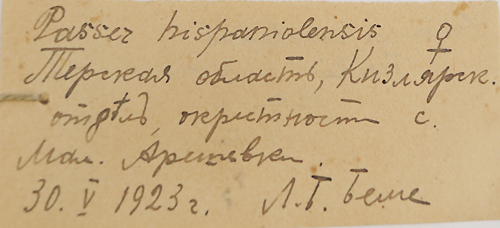 Passer hispaniolensis ♀
Терская область, Кизлярск.
отдѣлъ, окрестности с.
Мал. Арешевки.
30. V 1923 г. Л.Б. Беме